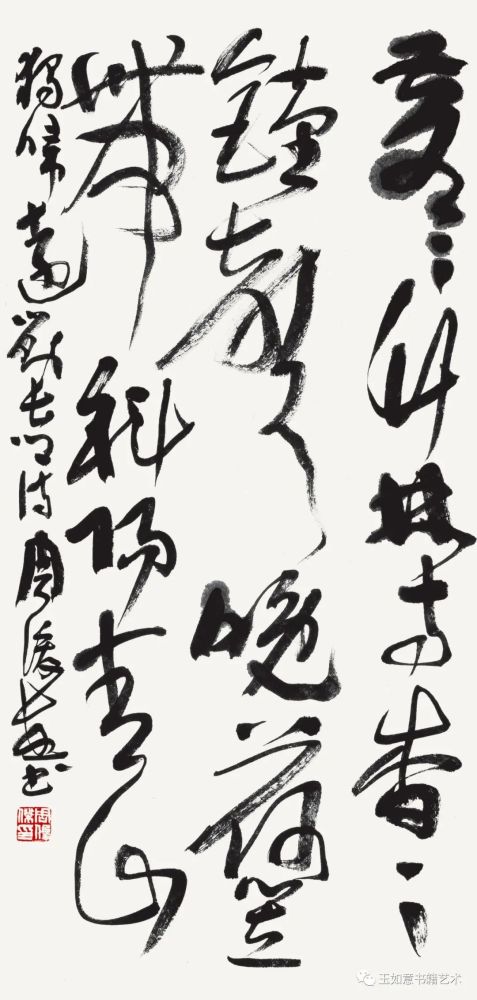 蒼〻竹林寺杳〻
鐘聲晚荷笠
帶斜陽青山
獨歸遠劉長卿詩周俊杰书
玉如意书籍艺术